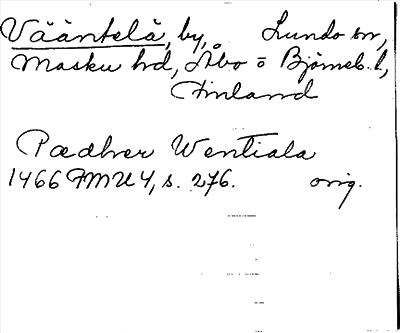 Vääntelä, by, Lundo sn,
Masku hd, Åbo o Björneb. l,
Finland
Pædher Wentiala
1466 FMU 4, s. 276. orig.